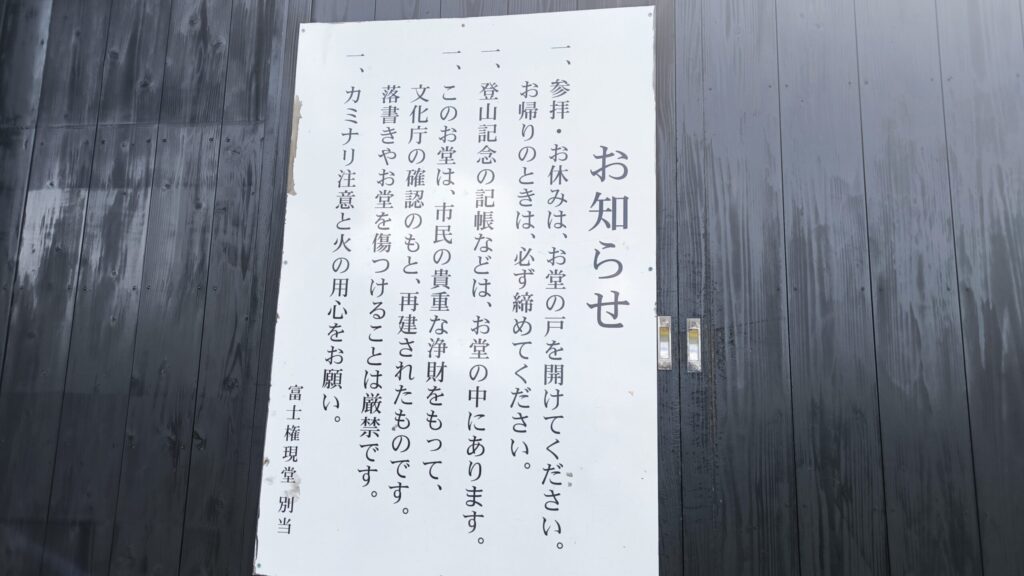 お知らせ
一、参拝・お休みは、お堂の戸を開けてください。
お帰りのときは、必ず締めてください。
一、登山記念の記帳などは、お堂の中にあります。
一、このお堂は、市民の貴重な浄財をもって、
文化庁の確認のもと、再建されたものです。
落書きやお堂を傷つけることは厳禁です。
一、カミナリ注意と火の用心をお願い。
富士権現堂 別当